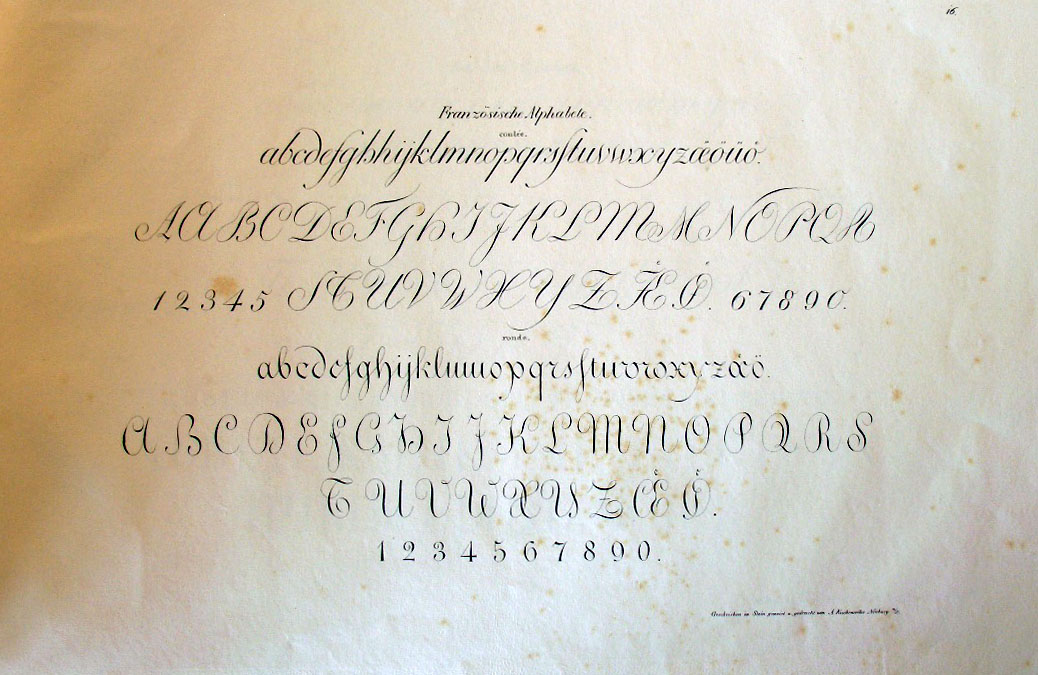 16.
Französische Alphabete.
coulée.
abcdefghhijklmnopqrsſtuvwxyzæöüo̊.
AABCDEFGHIJKLMMNOPQR
12345 STUVWXYZÆ̊O̊. 67890.
ronde.
abcdefghijklmnopqrsſtuvwxyzæö.
ABCDEFGHIJKLMNOPQRS
TUVWXYZÆ̊O̊.
1234567890.
Geschrieben in Stein gravirt u. gedruckt von A.